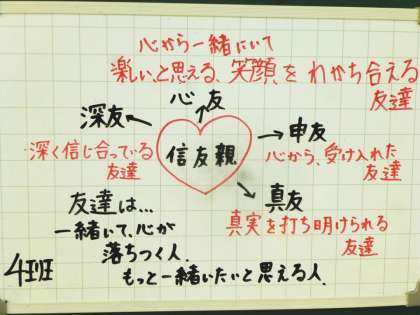 心から一緒にいて
楽しいと思える、笑顔をわかち合える
友達
心友
深友
深く信じ合っている
友達
信友親
申友
心から、受け入れた
友達
真友
真実を打ち明けられる
友達
友達は…
一緒いて、心が
落ちつく人。
もっと一緒いたいと思える人。
4班